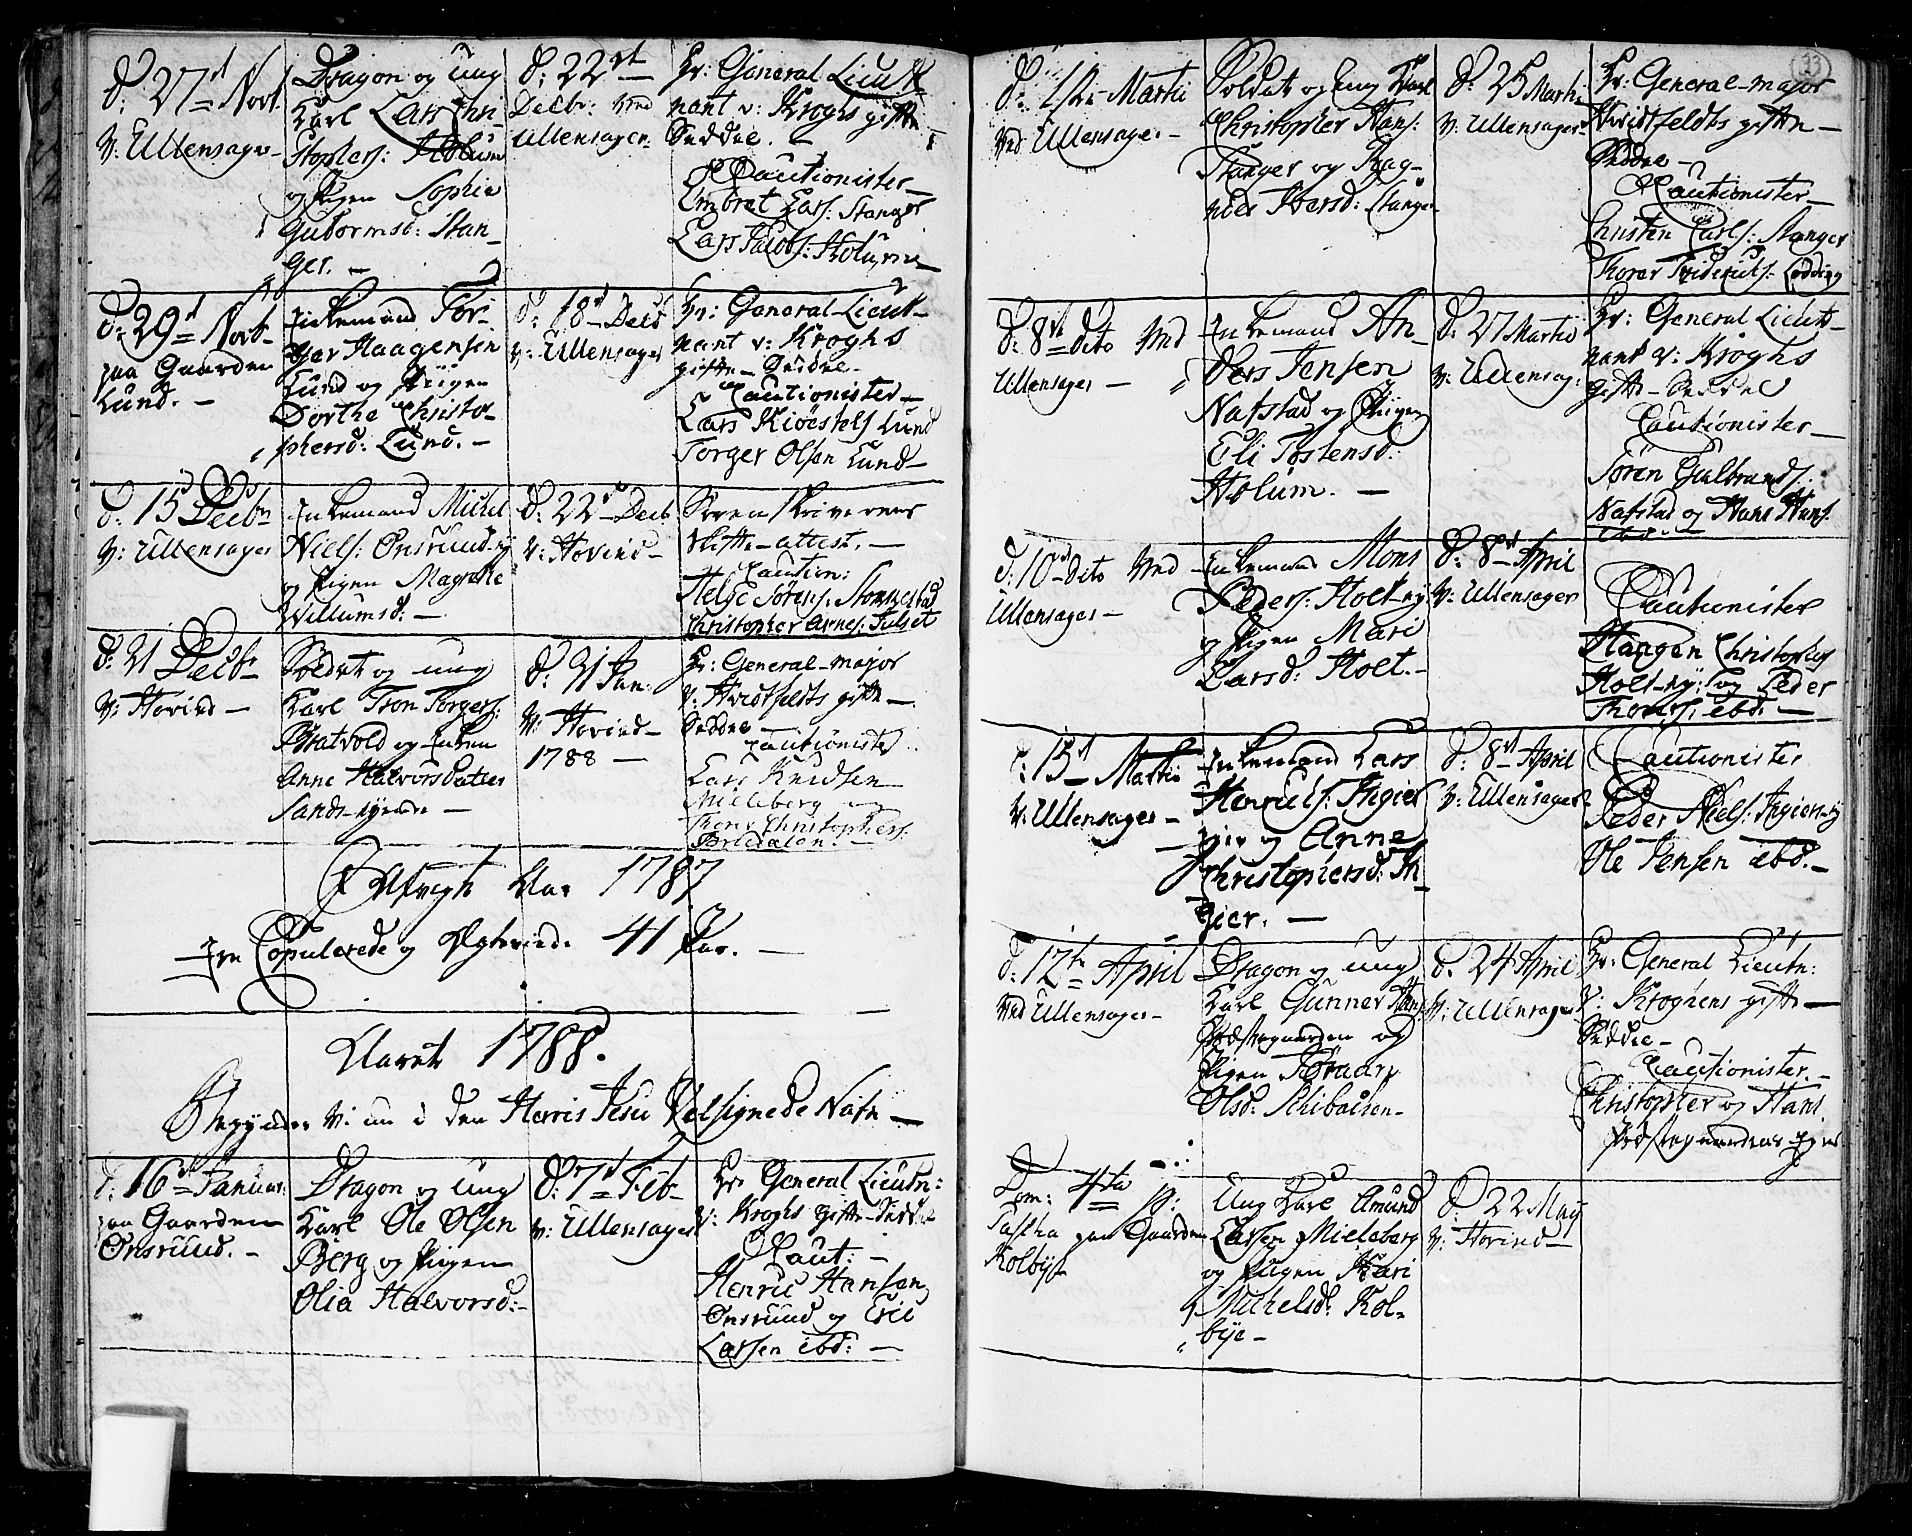 d: 27d Novbr
V: Ullensager
Dragon og ung
Karl Lars Chri-
stophers: Holum
og Pigen Sophia
Guttormsd: Stan-
ger. -
d: 22de
Decbr: ved
Ullensager
Hr: General Lieute-
nant v: Kroghs gifte
Seddel. -
Cautionister -
Embret Lars: Stanger
Lars Jacobs: Holum
d: 29d Novb-
paa Gaarden
Lund. -
Enkemand Tor-
ger Haagensen
Lund og Pigen
Dorthe Christo-
phersd: Lund. -
d: 18d Decb
v: Ullensager
Hr: General-Lieute-
nant v: Kroghs
gifte-Seddel-
Cautionister -
Lars Kiöestels Lund
Torger Olsen Lund -
d: 15 Decbr
V: Ullensager
Enkemand Michel
Niels: Onsruud-ej
og Pigen Magrethe
Willumsd: -
d: 22d Decb
V: Hovind -
Sorenskriverens
Skifte-attest. -
Caution:
Helge Sörens:
Christopher Arnes:
d: 21 Decbr
V: Hovind -
Soldat og ung
Karl Tron Torgers:
Bratvold og Enken
Anne Halvorsdatter
Sands-eyende -
d: 21 Jan:
V: Hovind -
1788 -
Hr: General-major
v: Hvidtfeldts gifte -
Seddel -
Cautionister
Lars Knudsen
Mieleberg og
Thore Christophers:
Afvigte Aar 1787
Ere Copulerede og Ægteviede 41 Par. -
Aaret 1788.
Begynder Vi nu i den Herris Jesu Velsignede Nafn -
d: 16d Januar:
paa Gaarden
Onsruud. -
Dragon og Ung
Karl Ole Olsen
Berg og Pigen
Olia Halvorsd: -
d: 7d Feb-
v: Ullensager
Hr General Lieutn:
v: Kroghs gifte-Seddel
Caut: -
Henric Hansen
Onsruud og Eric
Larsen ibd: -
33
Martii
ved Ullensager -
Soldat og ung Karl
Christopher Hans:
Stanger og Rag-
nild Iversd: Stanger
d: 25 Martii
v: Ullensager
Hr: General-major
Hvidtfeldts gifte -
Seddel -
Cautionister -
Christen Carls: Stanger
Thorer Friderichs:
d: 8de dito ved
Ullensager -
Enkemand An-
ders Jensen
Natstad og Pigen
Eli Tostensd:
Holum. -
d: 27 Martii
v: Ullensag:
Hr: General Lieute-
nant v: Kroghs
gifte-Seddel
Cautionister -
Sören Gulbrands:
Natstad og Hans Hans:
ibd. -
d: 10d dito ved
Ullensager -
Enkemand Mons
Peders: Holt-ej
og Pigen Mari
Larsd: Holt. -
d: 8de April
V: Ullensager
Cautionister
Haagen Christophers
Holt-ej: og Peder
Thoms: ibd: -
d: 15d Martii
V: Ullensager -
Enkemand Lars
Henrichs: Algier
og Anne
Christophersd: Al-
gier. -
d: 8d April
v: Ullensager
Cautionister
Peder Niels: Algier-ej
Ole Jensen ibd. -
d: 12te April
ved Ullensager -
Dragon og ung
Karl Gunner Hans:
Præstegaarden og
Pigen
Olsd: Schibolsen -
d: 24 April
v: Ullensager
Hr: General Lieutn:
v: Kroghens gifte -
Seddel -
Cautionister -
Christopher og Hans
Præstegaardens
Dom: 4ta p:
Pascha paa Gaarden
Kolbye
Ung Karl Amund
Larsen Mieleberg
og Pigen Kari
Michelsd: Kol-
bye -
d: 22 May
v: Hovind -